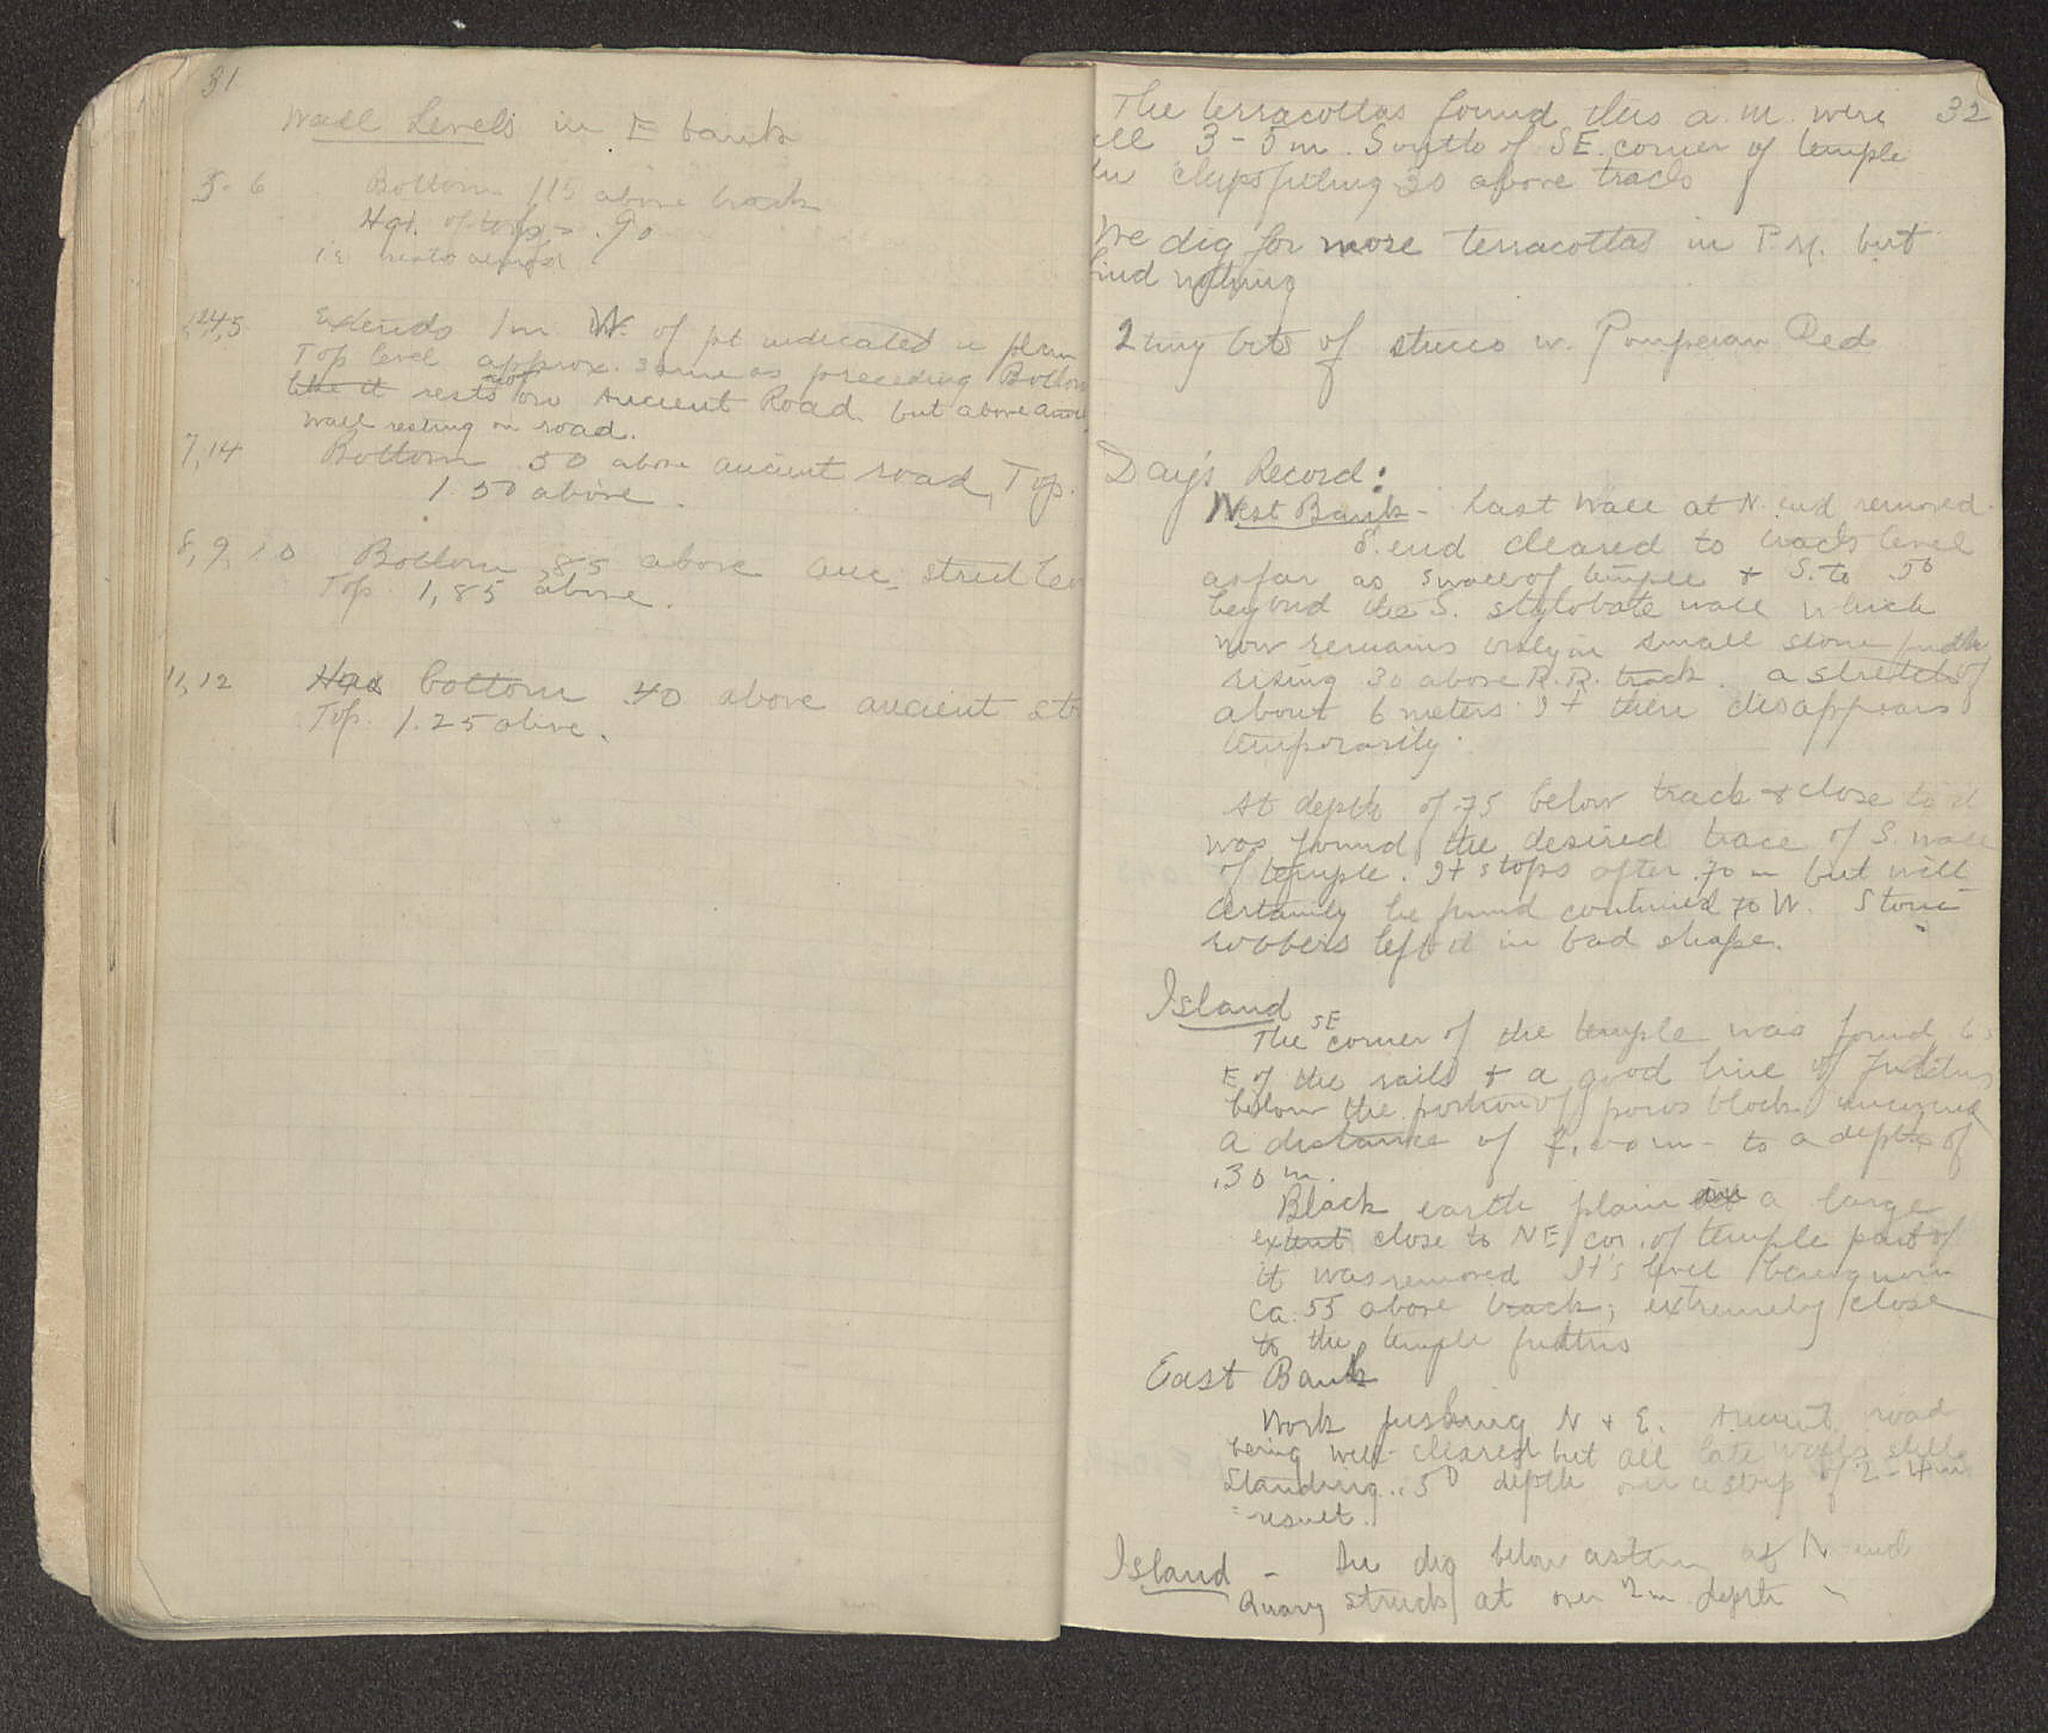 31
Wall Levels in E bank
5. 6 Bottom 1.15 above track
Hgt. of top = .90
i.e.
4,5 Extends 1m W. of pt indicated in plan
Top level approx. same as preceding Bottom
like it rests not on Ancient Road but above
wall resting on road.
7,14 Bottom .50 above ancient road, Top.
1.50 above.
8, 9, 10 Bottom .85 above anc. street
Top. 1,85 above.
11, 12 Has bottom .40 above ancient
Top. 1.25 above.
32
The terracottas found this a.m. were
all 3-5 m. South of SE. corner of temple
in 30 above track
We dig for more terracottas in P.M. but
find nothing
2 tiny bits of stucco w. Pompeian Red
Day's Record:
West Bank - Last Wall at N. end removed.
S. end cleared to track level
as far as S wall of temple & S. to .50
beyond the S. stylobate wall which
now remains only in small stone
rising 30 above R.R. track. a stretch of
about 6 meters. It then disappears
temporarily.
At depth of .75 below track & close to it
was found the desired trace of S. wall
of temple. It stops after .70 m but will
certainly be found continued to W. Stone
robbers left it in bad shape.
Island
The SE corner of the temple was found
E of the rails & a good line of
below the portion of poros block
a distance of m - to a depth of
,30 m.
Black earth plain a large
extent close to NE cor. of temple part of
it was removed It's level being now
ca. 55 above track; extremely close
to the temple
East Bank
Work pushing N & E. Ancient road
being well cleared but all late walls still
standing. .50 depth over a strip of 2-4m
= result.
Island - In dig below at N end
Quarry struck at over 2m depth -